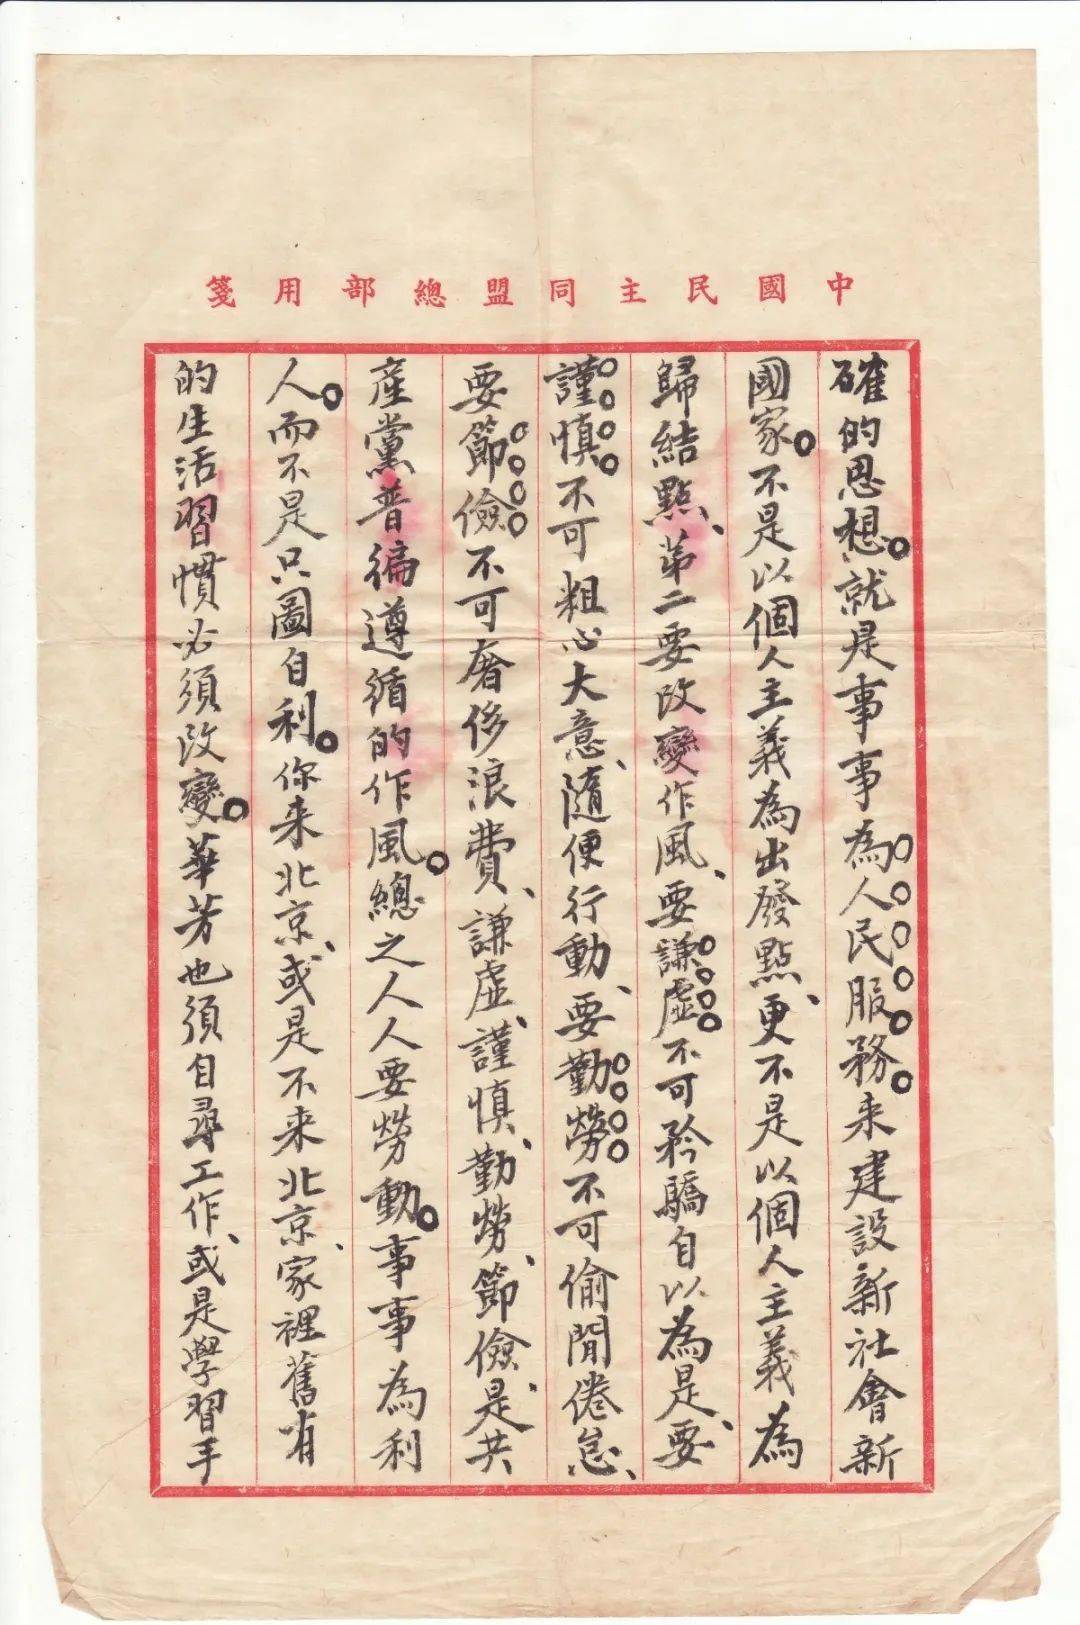 中國民主同盟總部用箋
確的思想。就是事事為人民服務。来建設新社會新
國家。不是以個人主義為出發點、更不是以個人主義為
歸結點、第二要改變作風、要謙虛不可矜驕自以為是、要
謹慎不可粗心大意、隨便行動、要勤勞不可偷閒倦怠、
要節儉不可奢侈浪費、謙虛、謹慎、勤勞、節儉、是共
産黨普徧遵循的作風。總之人人要勞動。事事為利
人。而不是只圖自利。你来北京、或是不来北京、家裡舊有
的生活習慣必須改變。華芳也須自尋工作、或是學習手